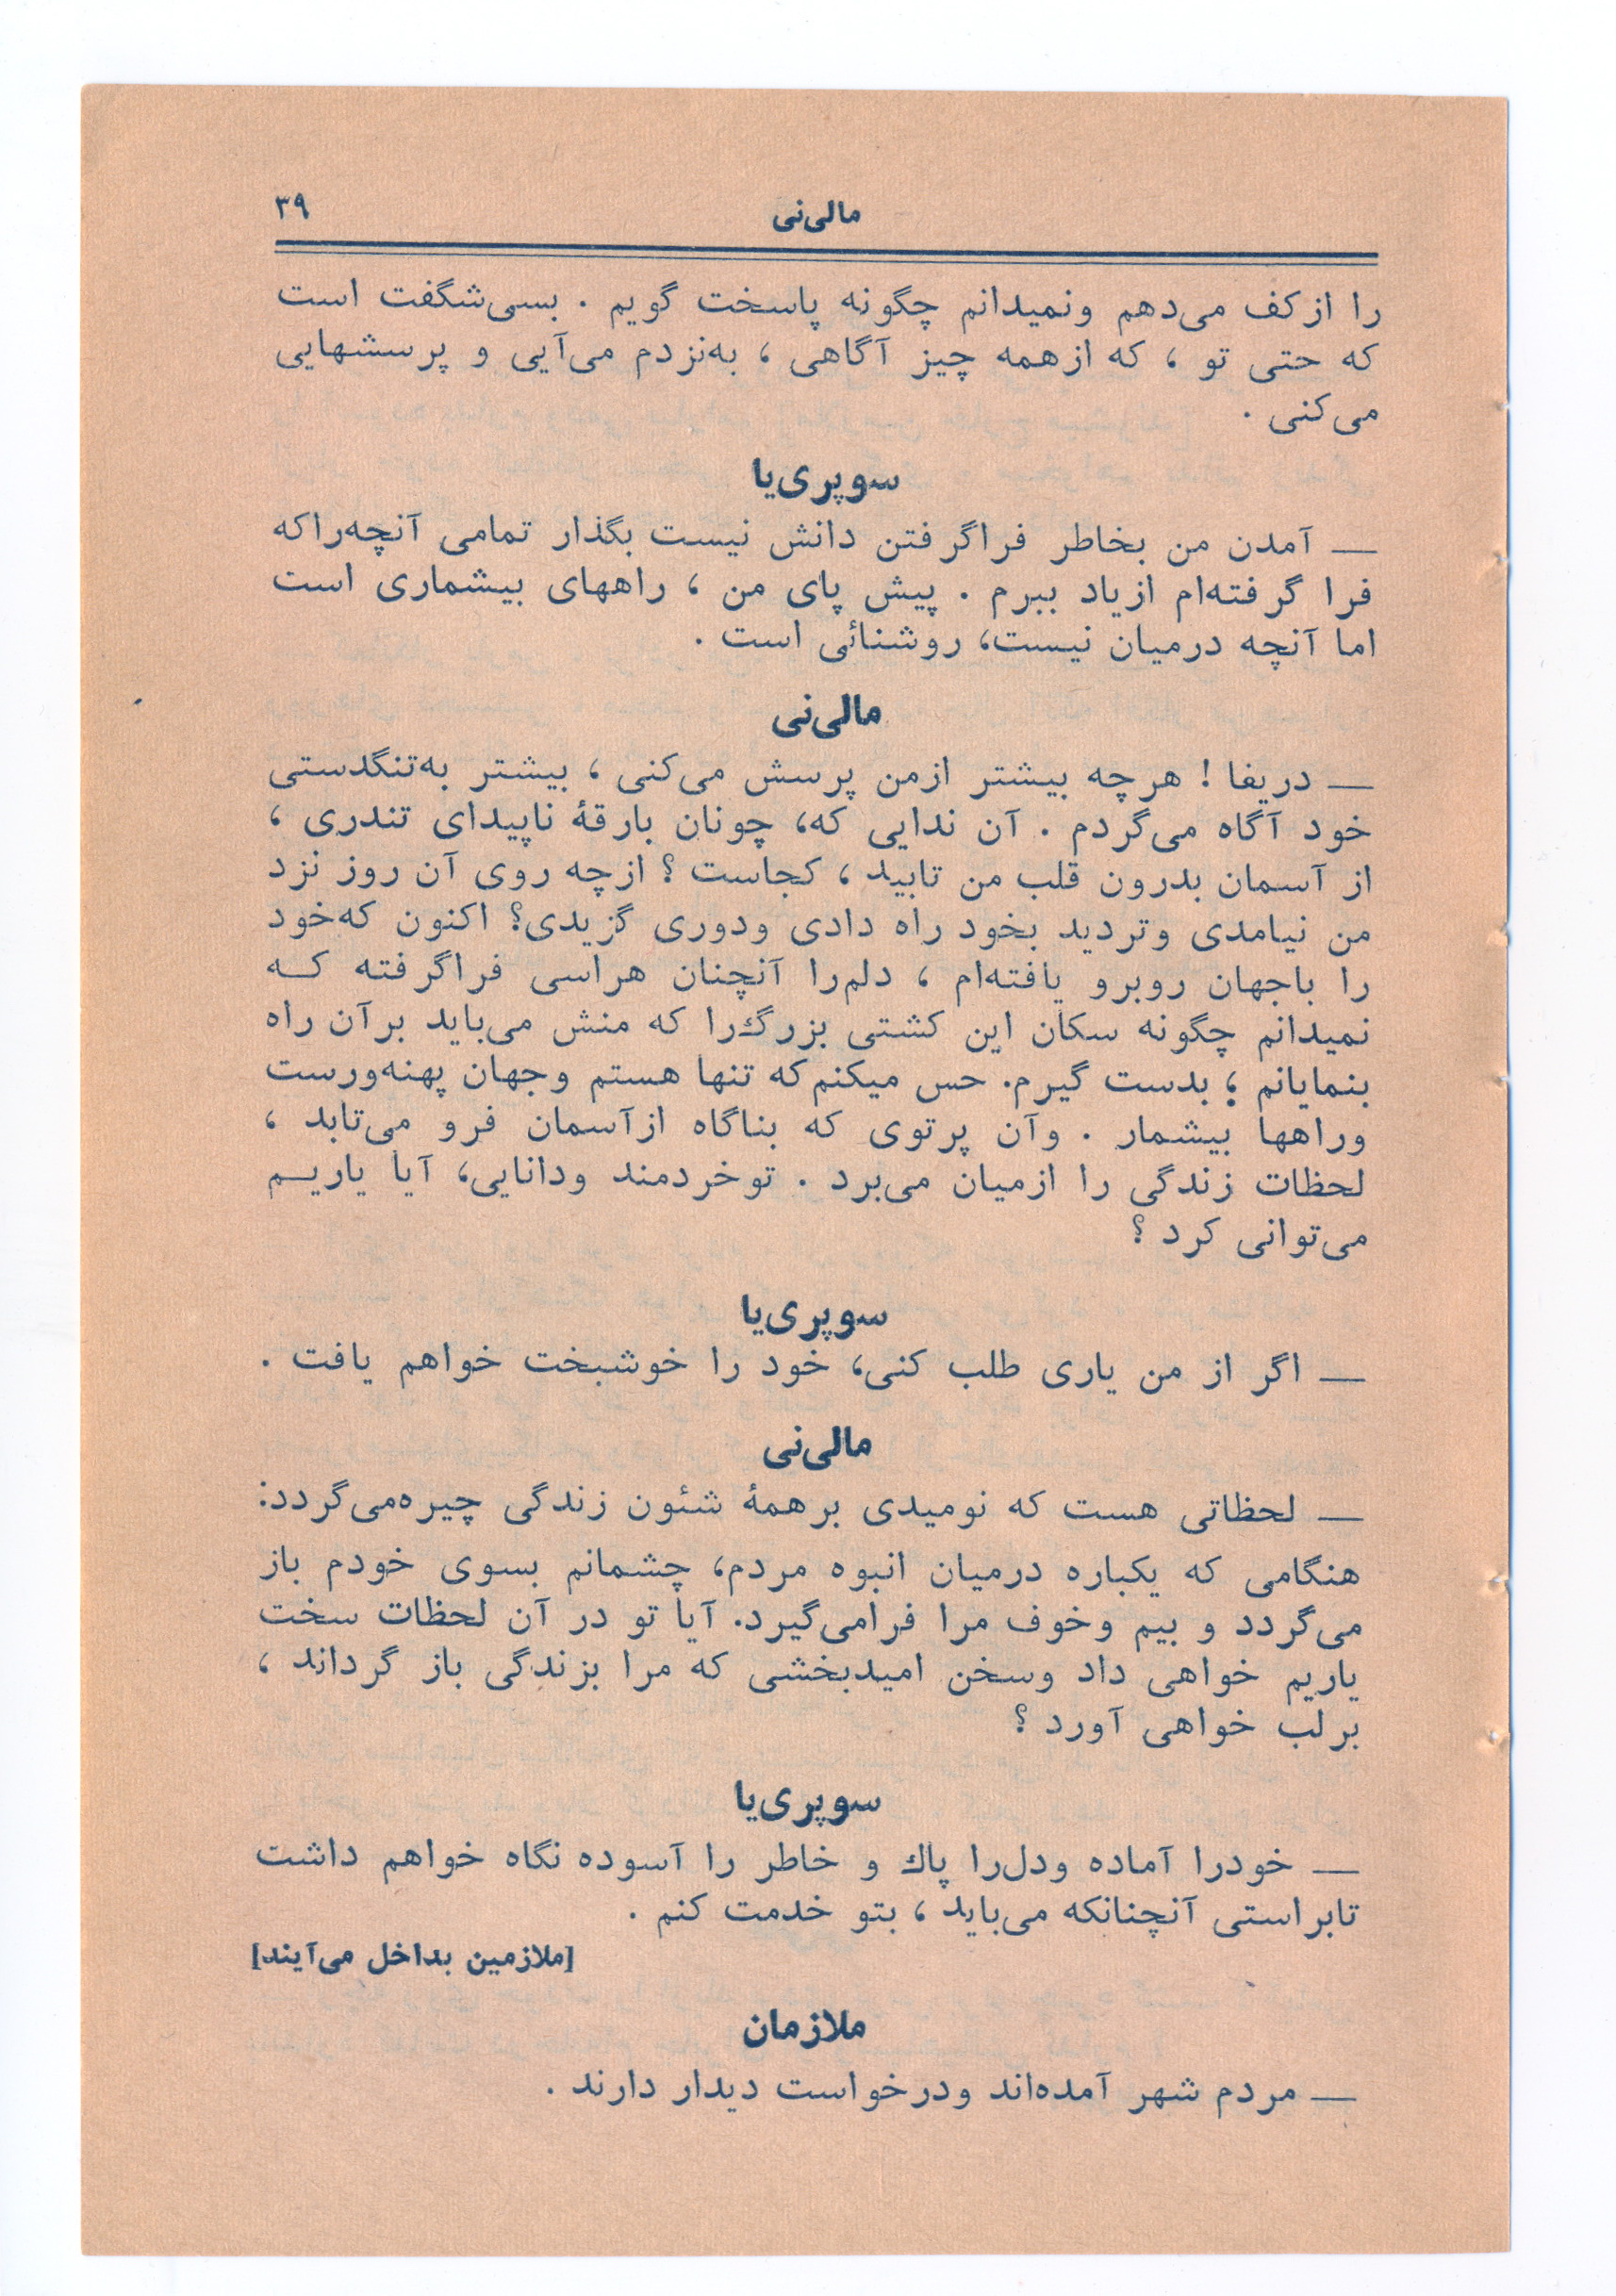 مالی‌نی
۳۹
را ازکف می‌دهم ونمیدانم چگونه پاسخت گویم . بسی‌شگفت است
که حتی تو ، که ازهمه چیز آگاهی ، به‌نزدم می‌آیی و پرسشهایی
می‌کنی .
سوپری‌یا
— آمدن من بخاطر فراگرفتن دانش نیست بگذار تمامی آنچه‌راکه
فرا گرفته‌ام ازیاد ببرم . پیش پای من ، راههای بیشماری است
اما آنچه درمیان نیست، روشنائی است .
مالی‌نی
— دریغا ! هرچه بیشتر ازمن پرسش می‌کنی ، بیشتر به‌تنگدستی
خود آگاه می‌گردم . آن ندایی که، چونان بارقهٔ ناپیدای تندری ،
از آسمان بدرون قلب من تابید ، کجاست ؟ ازچه روی آن روز نزد
من نیامدی وتردید بخود راه دادی ودوری گزیدی؟ اکنون که‌خود
را باجهان روبرو یافته‌ام ، دلم‌را آنچنان هراسی فراگرفته کـه
نمیدانم چگونه سکان این کشتی بزرگ‌را که منش می‌باید برآن راه
بنمایانم ؛ بدست گیرم. حس میکنم‌که تنها هستم وجهان پهنه‌ورست
وراهها بیشمار . وآن پرتوی که بناگاه ازآسمان فرو می‌تابد ،
لحظات زندگی را ازمیان می‌برد . توخردمند ودانایی، آیا یاریـم
می‌توانی کرد ؟
سوپری‌یا
— اگر از من یاری طلب کنی، خود را خوشبخت خواهم یافت .
مالی‌نی
— لحظاتی هست که نومیدی برهمهٔ شئون زندگی چیره‌می‌گردد:
هنگامی که یکباره درمیان انبوه مردم، چشمانم بسوی خودم باز
می‌گردد و بیم وخوف مرا فرامی‌گیرد. آیا تو در آن لحظات سخت
یاریم خواهی داد وسخن امیدبخشی که مرا بزندگی باز گرداند ،
برلب خواهی آورد ؟
سوپری‌یا
— خودرا آماده ودل‌را پاك و خاطر را آسوده نگاه خواهم داشت
تابراستی آنچنانکه می‌باید ، بتو خدمت کنم .
[ملازمین بداخل می‌آیند]
ملازمان
— مردم شهر آمده‌اند ودرخواست دیدار دارند .